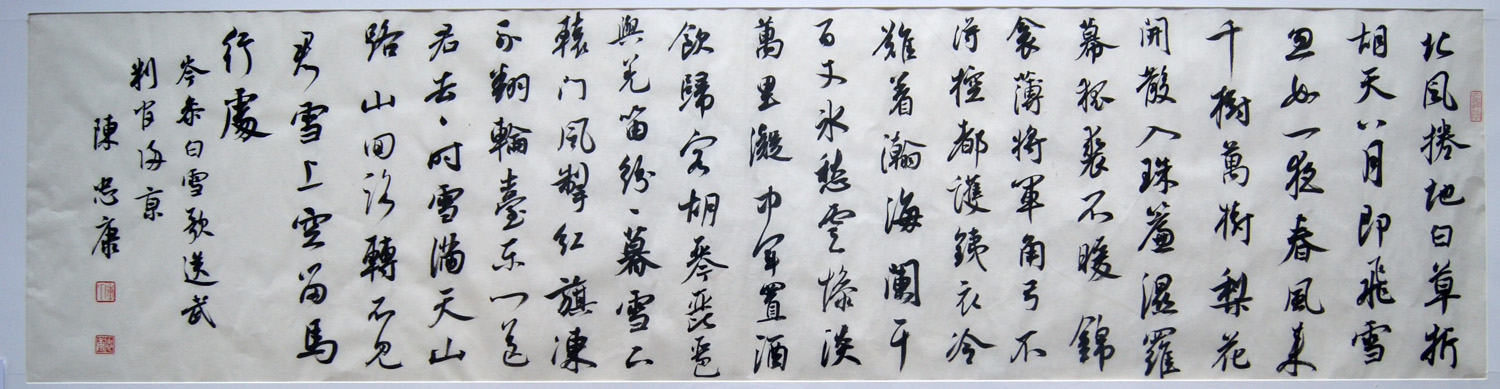 北風捲地白草折
胡天八月即飛雪
忽如一夜春風來
千樹萬樹梨花
開散入珠簾濕羅
幕狐裘不暖錦
衾薄將軍角弓不
得控都護銕衣冷
難着瀚海闌干
百丈冰愁雲慘淡
萬里凝中軍置酒
飲歸客胡琴琵琶
與羌笛紛〻暮雪下
轅門風掣紅旗凍
不翻輪臺東門送
君去〻時雪滿天山
路山回路轉不見
君雪上空留馬
行處
岑參白雪歌送武
判官歸京
陳忠康